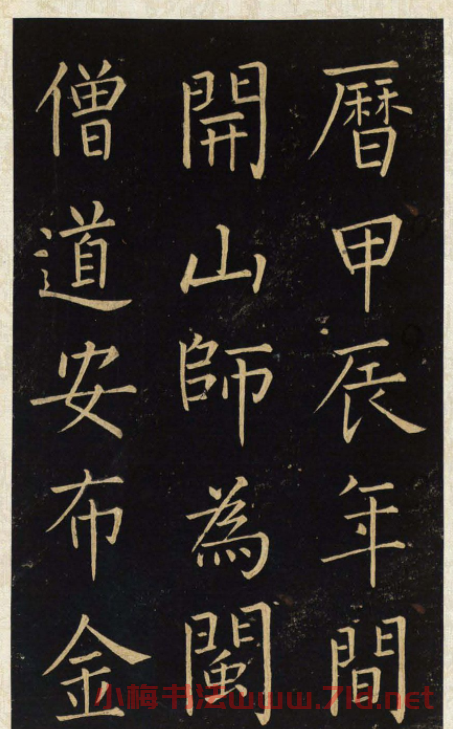 曆甲辰年間
開山師為閩
僧道安布金
小梅书法www.7ld.net